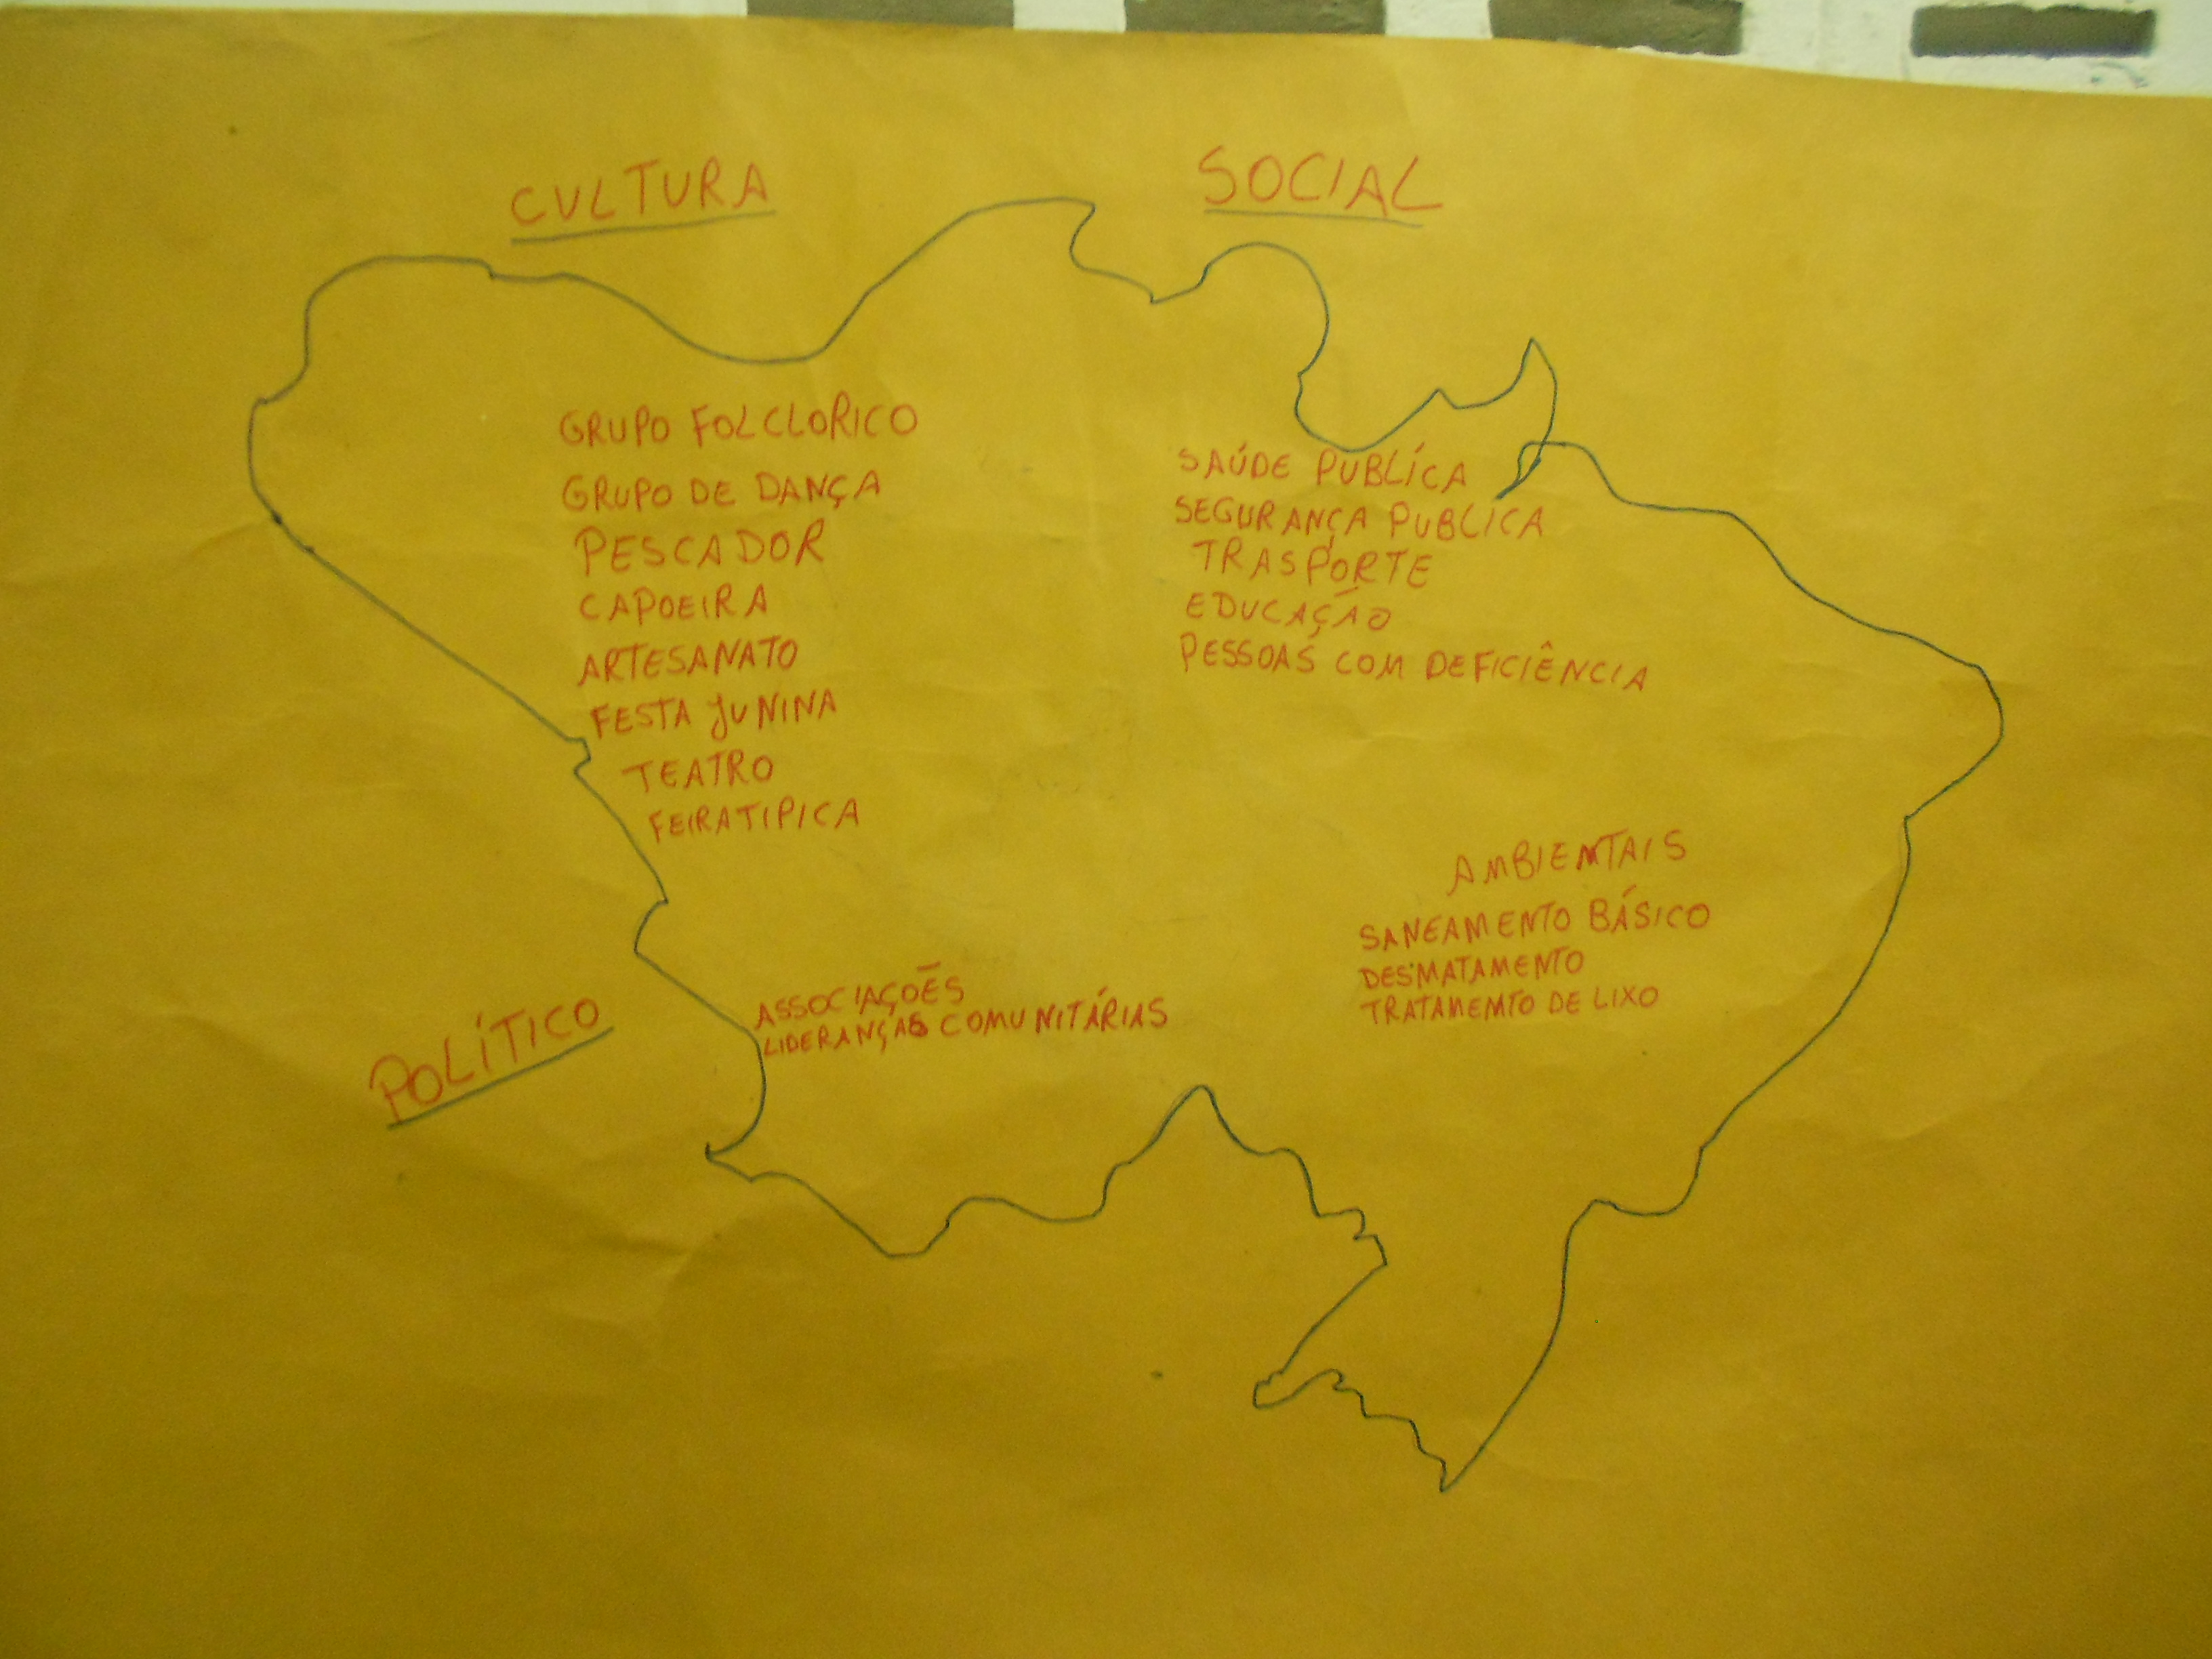 CULTURA
GRUPO FOLCLORICO
GRUPO DE DANÇA
PESCADOR
CAPOEIRA
ARTESANATO
FESTA JUNINA
TEATRO
FEIRA TIPICA
SOCIAL
SAÚDE PUBLÍCA
SEGURANÇA PUBLICA
TRASPORTE
EDUCAÇÃO
PESSOAS COM DEFICIÊNCIA
POLÍTICO
ASSOCIAÇÕES
LIDERANÇAS COMUNITÁRIAS
AMBIENTAIS
SANEAMENTO BÁSICO
DESMATAMENTO
TRATAMENTO DE LIXO